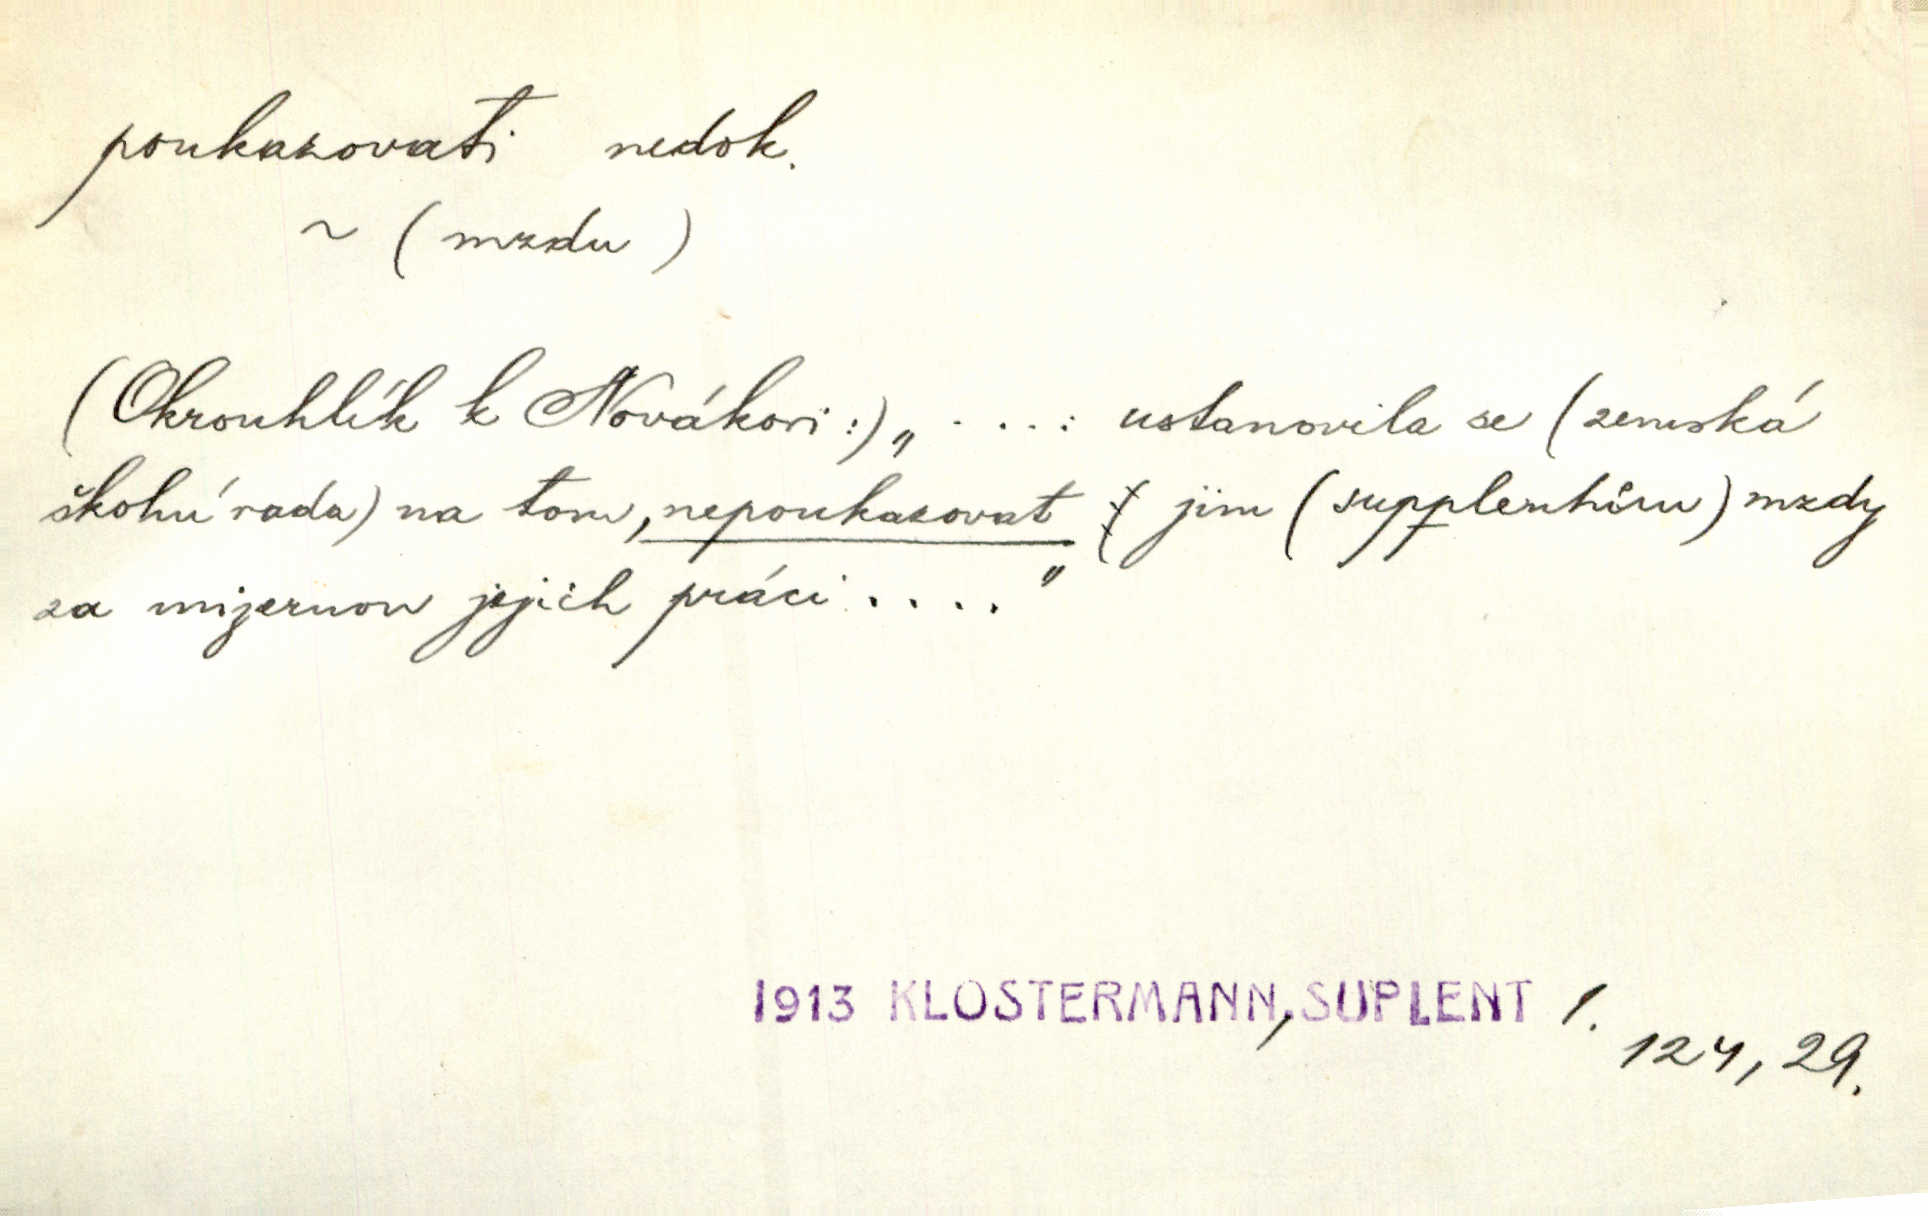 poukazovati nedok.
~ (mzdu)
(Okrouhlík k Novákovi:) „ ....: ustanovila se (zemská
školní rada) na tom, nepoukazovat jim (supplentům) mzdy
za mizernou jejich práci ...."
1913 KLOSTERMANN, SUPLENT 1.
124, 29.